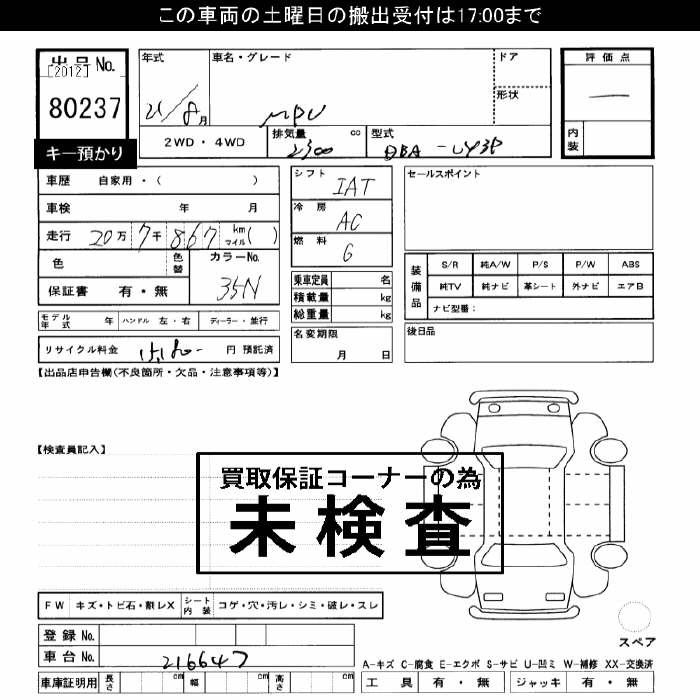 この車両の土曜日の搬出受付は17:00まで
出品 No. 年式 車名・グレード ドア 評価点
[2012]
80237 21/8月 MPV 形状 —
2WD・4WD 排気量 2300 cc 型式 DBA-LY3P 内装
キー預かり
車歴 自家用・( ) シフト IAT セールスポイント
車検 年 月 冷房 AC
走行 20万 7千 867 km マイル( ) 燃料 G
色 色替 カラーNo. 35N 乗車定員 名 装備品 S/R 純A/W P/S P/W ABS
保証書 有・無 積載量 kg 純TV 純ナビ 革シート 外ナビ エアB
総重量 kg ナビ型番:
モデル年式 年 ハンドル 左・右 ディーラー・並行 名変期限 月 日 後日品
リサイクル料金 15,180- 円 預託済
【出品店申告欄(不良箇所・欠品・注意事項等)】
【検査員記入】
買取保証コーナーの為
未検査
FW キズ・トビ石・割レX シート内装 コゲ・穴・汚レ・シミ・破レ・スレ
登録 No. スペア
車台 No. 216647 A-キズ C-腐食 E-エクボ S-サビ U-凹ミ W-補修 XX-交換済
車庫証明用 長さ cm 幅 cm 高さ cm 工具 有・無 ジャッキ 有・無